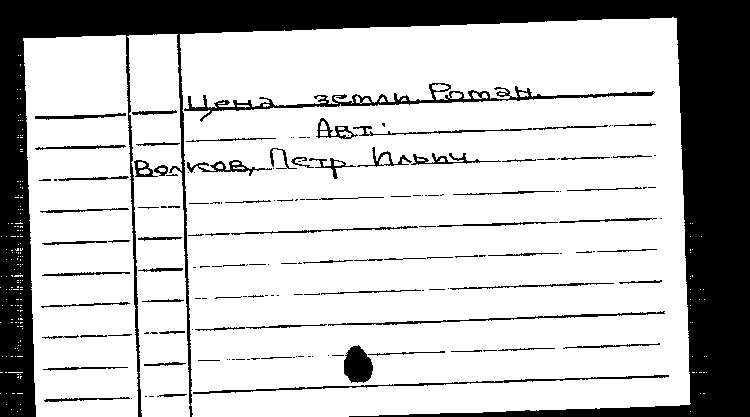 Цена земли. Роман.
Авт.:
Волков, Петр Ильич.